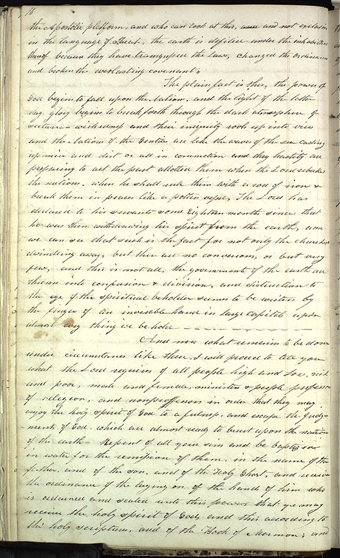 the Apostolic platform, and who can look at this, and not exclaim
in the language of Isaiah, the earth is defiled under the inhabitants
thereof because they have transgressed the Laws, changed the ordinances
and broken the everlasting covenant.
The plain fact is this, the power of
God begins to fall upon the Nation, and the light of the latter
day glory begins to break forth through the dark atmosphere of
sectarian wickedness and their iniquity rools up into view
and the Nations of the Gentiles are like the waves of the sea casting
up mire and dirt or all in commotion and they hastily are
preparing to act the part allotted them when the Lord rebukes
the nations, when he shall rule them with a rod of iron &
break them in pieces like a potters vessel. The Lord has
declared to his servants some Eighteen months since that
he was then withdrawing his spirit from the earth, and
we can see that such is the fact for not only the churches
dwindling away, but there are no conversions, or but very
few, and this is not all, the governments of the earth are
thrown into confusion & division, and distruction to
the eye of the spiritual beholder seems to be writen by
the finger of an invisable hand in Large capitals upon
almost evry thing we behold
And now what remains to be done
under circumstances like these, I will proceed to tell you
what the Lord requires of all people high and low, rich
and poor, male and female, ministers & people professors
of religeon, and nonproffessors in order that they may
enjoy the holy spirit of God to a fulness, and escape the judge-
ments of God, which are almost ready to burst upon the nations
of the earth— Repent of all your sins and be baptized
in water for the remission of them, in the name of the
father, and of the son, and of the Holy Ghost, and receive
the ordinance of the laying on of the hands of him who
is ordained and sealed unto this power, that ye may
receive the holy spirit of God, and this according to
the holy scriptures, and of the Book of Mormon; and